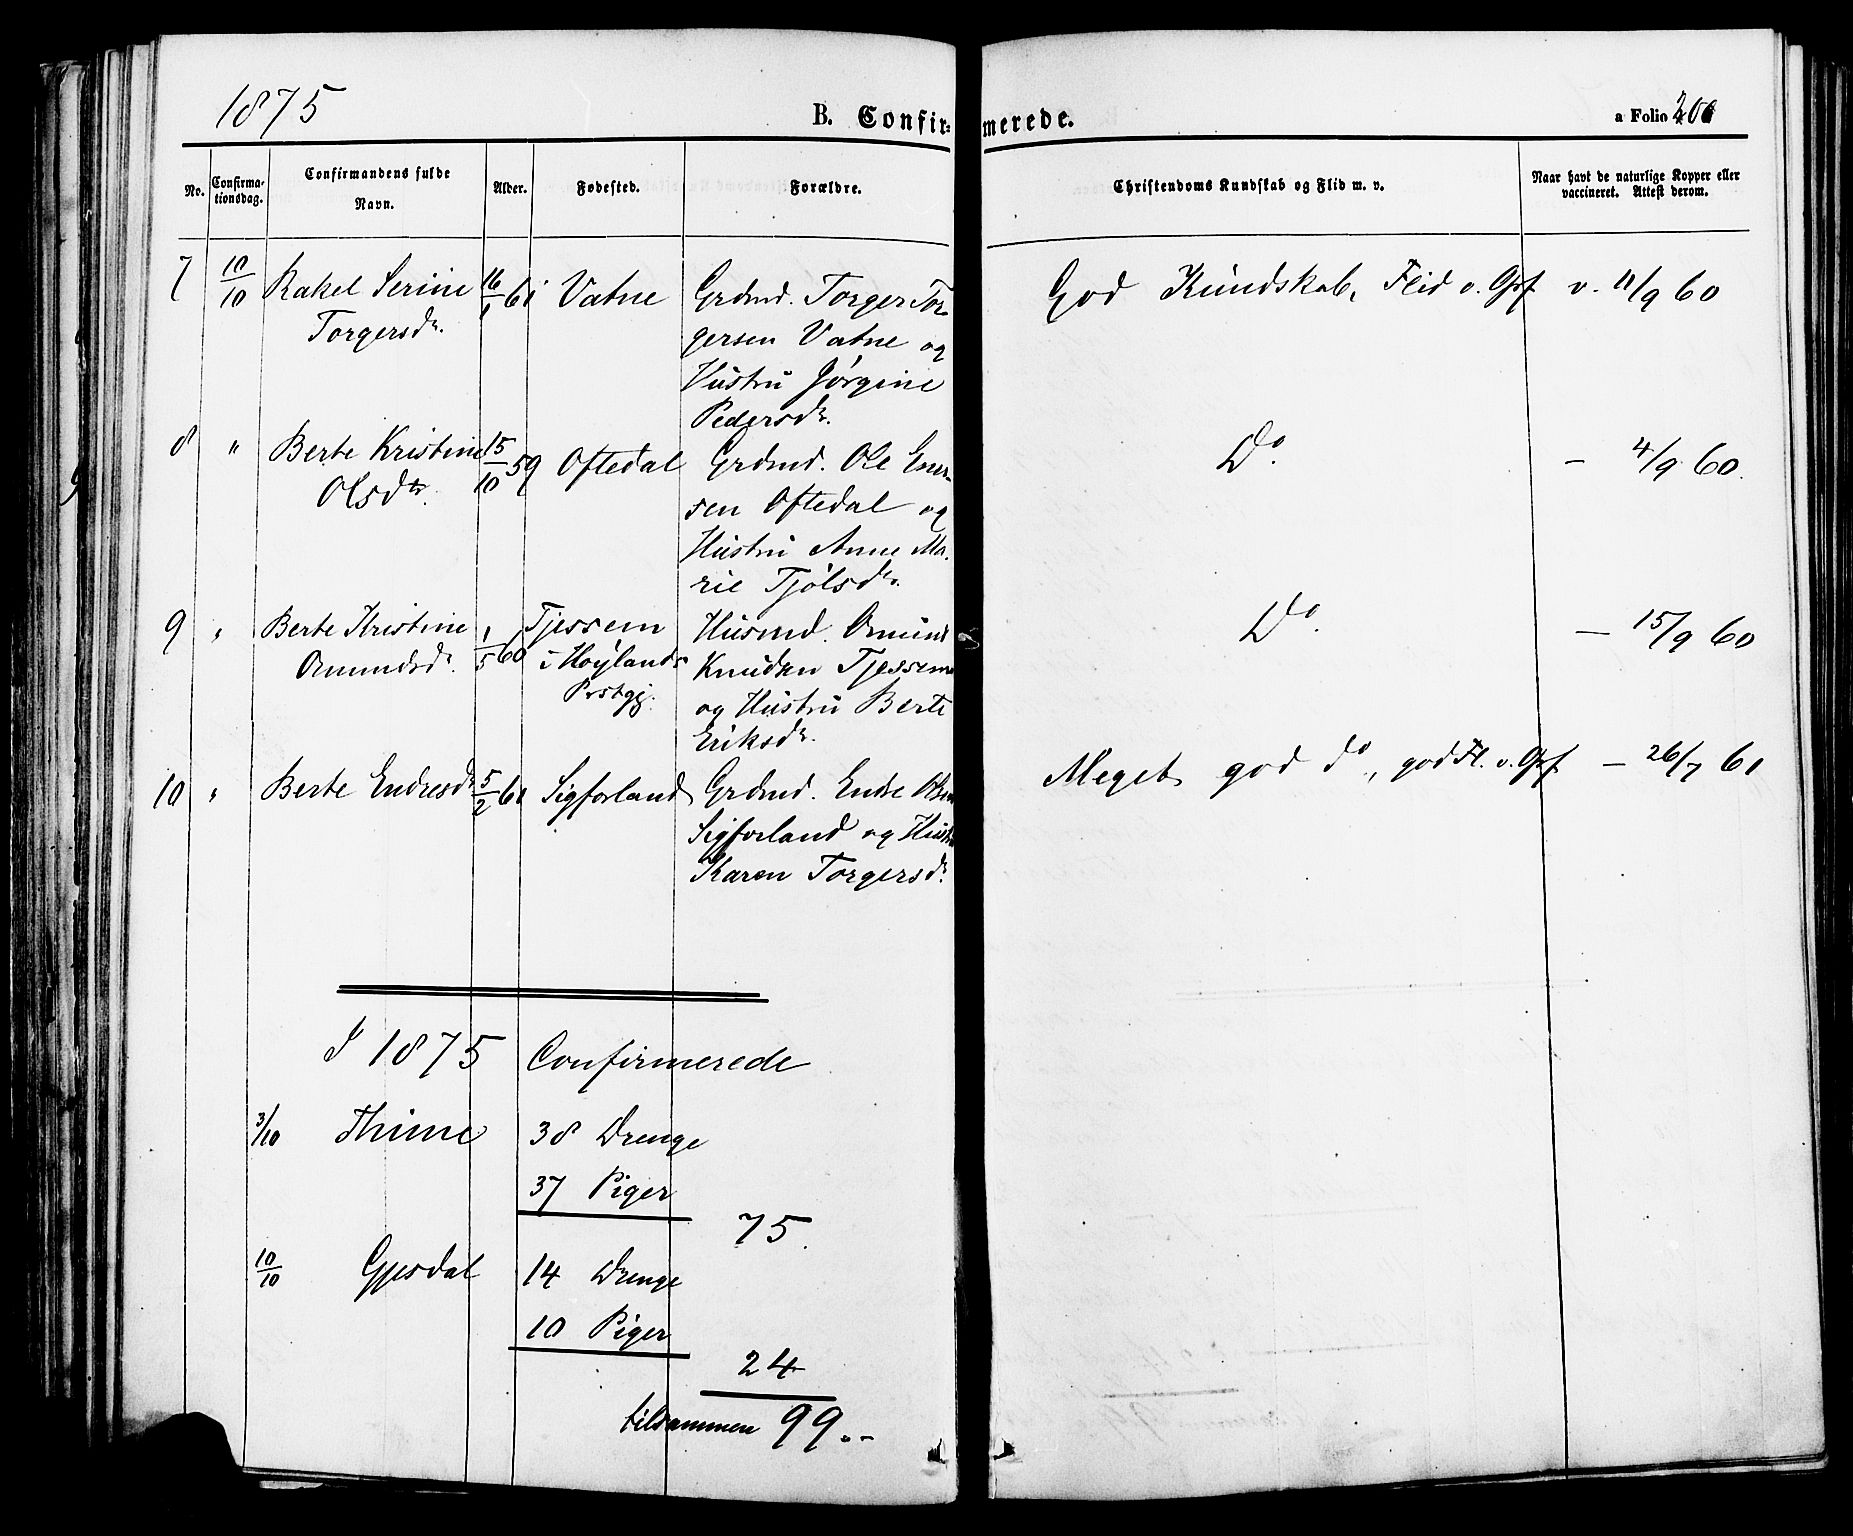 1875
B. Confirmerede.
a Folio
No.
Confirmationsdag.
Confirmandens fulde Navn.
Alder.
Fødested.
Forældre.
Christendoms Kundskab og Flid m. v.
Naar havt de naturlige Kopper eller
vaccineret. Attest derom.
7 10/10 Rakel Serine 16/1 61 Vatne Grdmd. Torger Tor- God Kundskab, Flid o. Opf v. 11/9 60
Torgersdr. gersen Vatne og
Hustru Jørgine
Pedersdr.
8 " Berte Kristine 15/10 59 Oftedal Grdmd. Ole Ener- Do. - 4/9 60.
Olsdtr. sen Oftedal og
Hustru Anne Ma-
rie Tjølsdtr.
9 " Berte Kristine 1/5 60 Tjessem Husmd. Omund Do. - 15/9 60
Omundsdr. i Høylands Knudsen Tjessem
Prstgj. og Hustru Berte
Eriksdr.
10 " Berte Endresdr 5/2 61 Sigforland Grdmd. Endre Olsen Meget god do, god Fl. o. Opf - 26/7 61
Sigforland og Hustru
Karen Torgersdr.
I 1875 Confirmerede
3/10 Thime 38 Drenge
37 Piger
75.
10/10 Gjesdal 14 Drenge
10 Piger
24
tilsammen 99.-